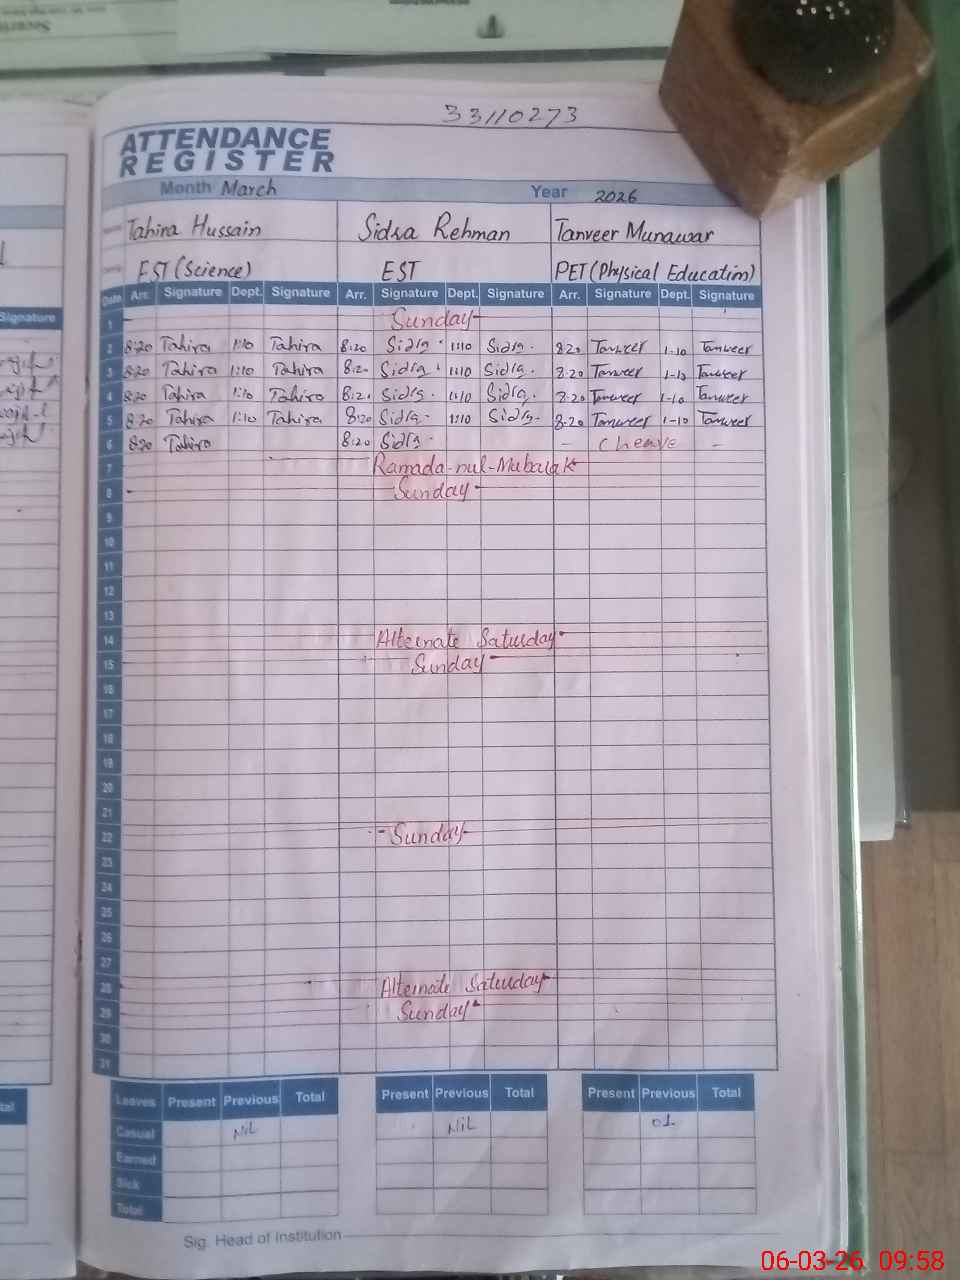 33110273
ATTENDANCE
REGISTER
Month March Year 2026
Tahira Hussain Sidra Rehman Tanveer Munawar
EST (Science) EST PET (Physical Education)
Date Arr. Signature Dept. Signature Arr. Signature Dept. Signature Arr. Signature Dept. Signature
1 Sunday
2 8:20 Tahira 1:10 Tahira 8:20 Sidra 1:10 Sidra 8:20 Tanveer 1-10 Tanveer
3 8:20 Tahira 1:10 Tahira 8:20 Sidra 1:10 Sidra 8:20 Tanveer 1-10 Tanveer
4 8:20 Tahira 1:10 Tahira 8:20 Sidra 1:10 Sidra 8:20 Tanveer 1-10 Tanveer
5 8:20 Tahira 1:10 Tahira 8:20 Sidra 1:10 Sidra 8:20 Tanveer 1-10 Tanveer
6 8:20 Tahira 8:20 Sidra - C leave -
7 Ramada-nul-Mubarak
8 Sunday
9
10
11
12
13
14 Alternate Saturday
15 Sunday
16
17
18
19
20
21
22 Sunday
23
24
25
26
27
28 Alternate Saturday
29 Sunday
30
31
Leaves Present Previous Total Present Previous Total Present Previous Total
Casual Nil Nil 01
Earned
Sick
Total
Sig. Head of Institution
06-03-26 09:58